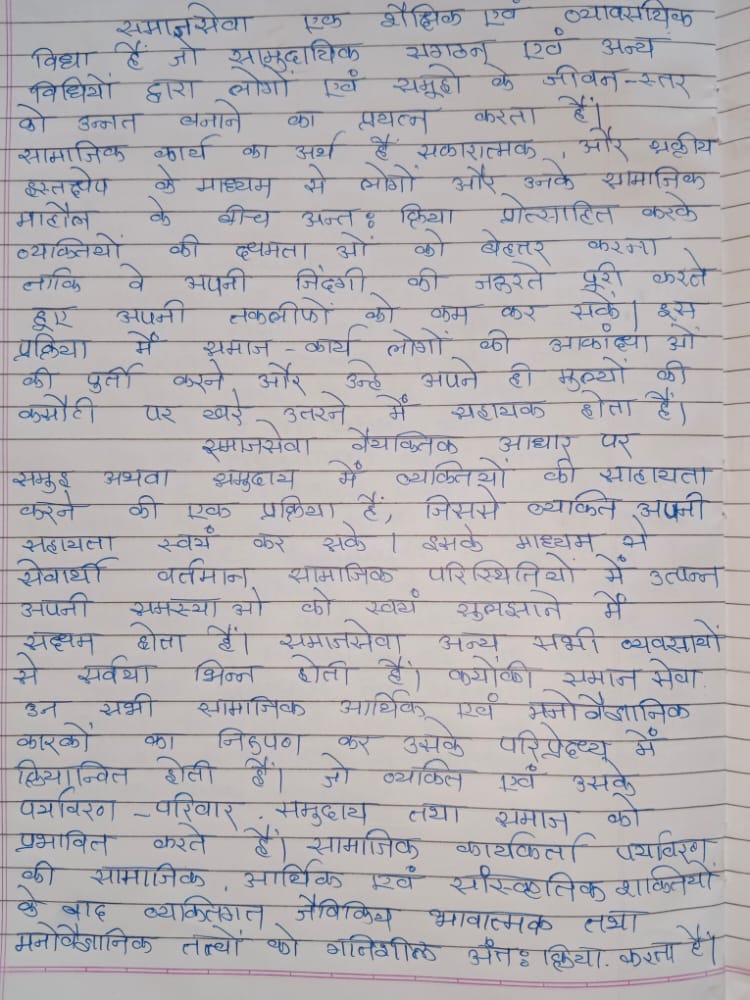 समाजसेवा एक शैक्षिक एवं व्यावसायिक
विधा हैं जो सामुदायिक सगठन एवं अन्य
विधियों द्वारा लोगों एवं समूहो के जीवन-स्तर
को उन्नत बनाने का प्रयत्न करता हैं।
सामाजिक कार्य का अर्थ हैं सकारात्मक, और सक्रीय
हस्तक्षेप के माध्यम से लोगों और उनके सामाजिक
माहौल के बीच अन्तः क्रिया प्रोत्साहित करके
व्यक्तियों की क्षमता ओं को बेहतर करना
ताकि वे अपनी जिंदगी की जरुरते पूरी करते
हुए अपनी तकलीफों को कम कर सकें। इस
प्रक्रिया में समाज-कार्य लोगों की आकांक्षा ओं
की पुर्ती करने और उन्हे अपने ही मुल्यों की
कसौटी पर खरे उतरने में सहायक होता हैं।
समाजसेवा वैयक्तिक आधार पर
समुह अथवा समुदाय में व्यक्तियों की साहायता
करने की एक प्रक्रिया हैं, जिससे व्यक्ति अपनी
सहायता स्वयं कर सके। इसके माध्यम से
सेवार्थी वर्तमान सामाजिक परिस्थितियों में उत्पन्न
अपनी समस्या ओ को स्वयं सुलझाने में
सक्षम होता हैं। समाजसेवा अन्य सभी व्यवसायों
से सर्वथा भिन्न होती हैं। क्योंकी समान सेवा
उन सभी सामाजिक आर्थिक एवं मनोवैज्ञानिक
कारकों का निरुपण कर उसके परिप्रेक्ष्य में
क्रियान्वित होती हैं। जो व्यक्ति एवं उसके
पर्यावरण-परिवार, समुदाय तथा समाज को
प्रभावित करते हैं। सामाजिक कार्यकर्ता पर्यावरण
की सामाजिक, आर्थिक एवं सांस्कृतिक शक्तियों
के बाद व्यक्तिगत जैविकिय भावात्मक तथा
मनोवैज्ञानिक तत्वों को गतिशील अंतः क्रिया. करता है।